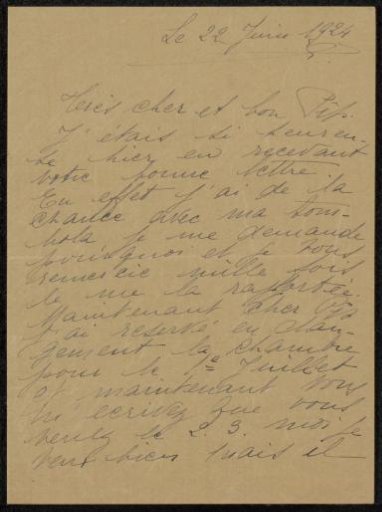 Le 22 Juin 1924
Très cher et bon Pip.
J'étais si heureu-
se hier en recevant
votre bonne lettre.
En effet j'ai de la
chance avec ma tom-
bola je me demande
pourquoi et je vous
remercie mille fois
de me la rapporter.
Maintenant cher Pip
j'ai reservé en
la chambre
pour le 1e Juillet
et maintenant vous
m'écrivez que vous
venez le 2. 3. moi je
veux bien mais il